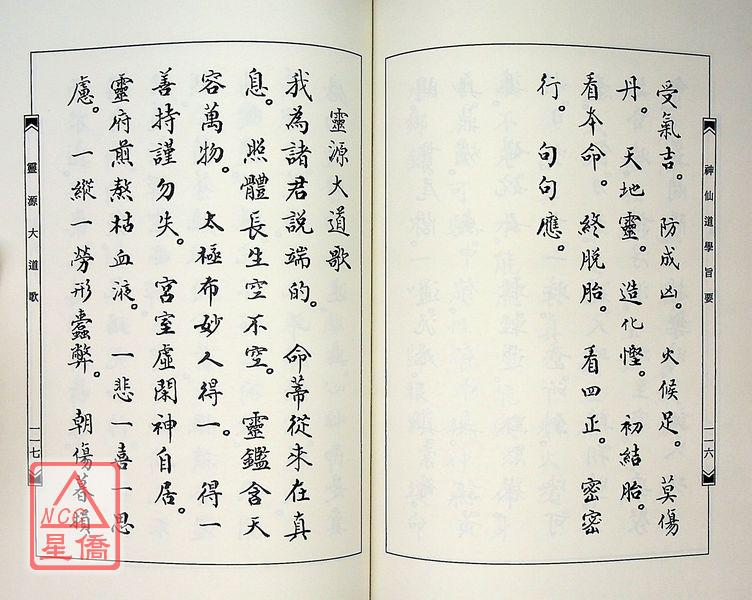 神仙道學旨要
一一六
受氣吉。防成凶。火候足。莫傷
丹。天地靈。造化慳。初結胎。
看本命。終脫胎。看四正。密密
行。句句應。
靈源大道歌
我為諸君說端的。命蒂從來在真
息。照體長生空不空。靈鑑含天
容萬物。太極布妙人得一。得一
善持謹勿失。宮室虛閑神自居。
靈府煎熬枯血液。一悲一喜一思
慮。一縱一勞形蠹弊。朝傷暮損
靈源大道歌
一一七
NCC
星僑